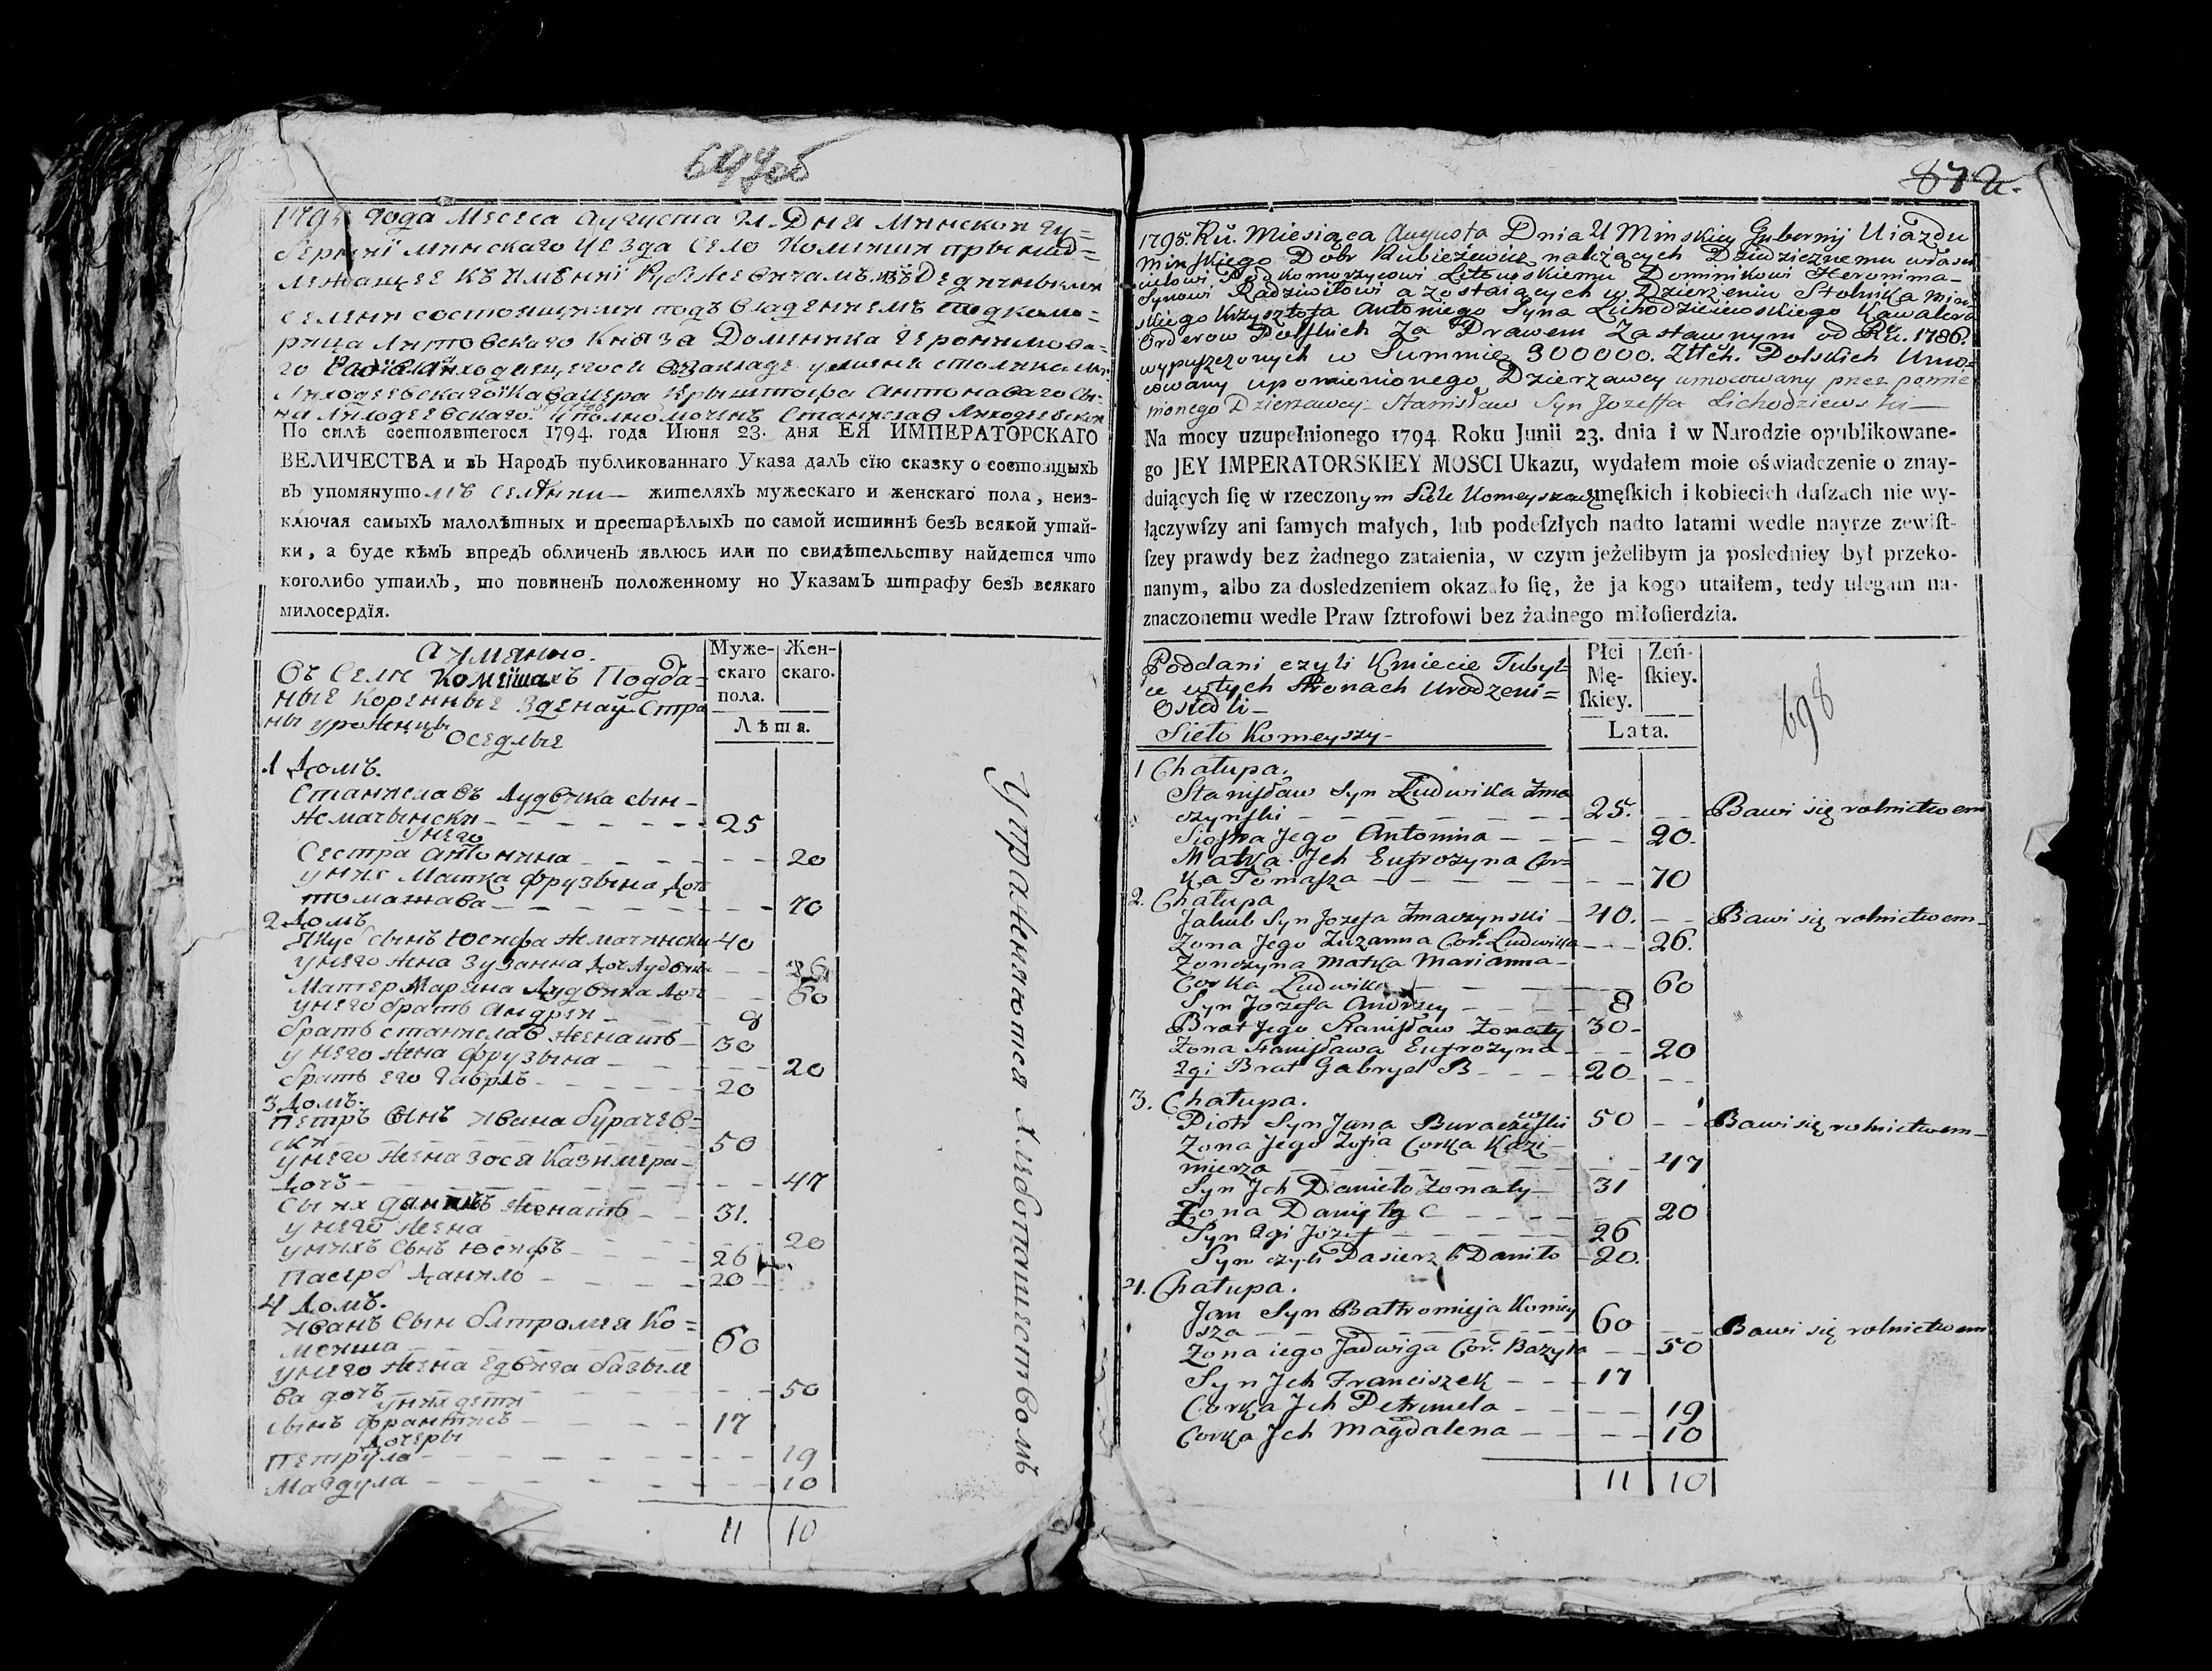 697об
1795 года Месеца Аугуста 21. Дня Минской гу=
берниї Минскаго уезда Село Комейши прынад=
лежащее къ имѣниї Рубежевичамъ
селени состоящими подъ владениемъ подкомо=
рица Литовскаго Княза Доминика Геронимова=
го
Лиходзевскаго Кавалера Крыштофа Антоноваго Сы=
на Лиходзевскаго. Станислав Лиходзевский
По силѣ состоявшегося 1794. года Июня 23. дня ЕЯ ИМПЕРАТОРСКАГО
ВЕЛИЧЕСТВА и въ Народъ публикованнаго Указа далъ сїю сказку о состоящыхъ
въ упомянутомъ селѣнии — жителяхъ мужескаго и женскаго пола, неиз-
ключая самыхъ малолѣтныхъ и престарѣлыхъ по самой истиннѣ безъ всякой утай-
ки, а буде кѣмъ впредъ обличенъ явлюсь или по свидѣтельству найдется что
коголибо утаилъ, то повиненъ положенному по Указамъ штрафу безъ всякаго
милосердїя.
а имянно.
Въ Селе Комейшахъ Подда=
ные коренные зденай Стра
ны уроженцы
оседлые
Муже-
скаго
пола.
Жен-
скаго.
Лѣта.
1 Домъ.
Станиславъ Лудвика сын—
жмачынски 25
у него
Сестра антонина 20
у них матка фрузына доч
томашава 70
2 Домъ
Якуб сынъ Юсифа жмачински 40
у него жена Зузанна доч лудвика 26
Матер Марина Лудвика доч 60
у него братъ Андрей 8
братъ станислав женатъ 30
у него жена фрузына 20
братъ его Габрль 20
3 Домъ.
Петръ сынъ Ивана бурачев=
ски 50
у него жена зося казимера
дочъ 47
Сы их данилъ женатъ 31.
у него жена 20
у нихъ сынъ Юсифъ 26
Пасерб Данило 20
4 Домъ.
Иванъ Сын батромея Ко=
мейша 60
у него жена едвига базыле
ва дочъ 50
у них дети
сынъ францисъ 17
дочеры
Петруля 19
Магдула 10
11 10
Упражняются хлебопашествомъ
872.
1795. Ru. Miesiąca Augusta Dnia 21 Minskiey Gubernij Uiazdu
Minskiego Dobr Rubieżewicz należących Dziedzicznemu właści
cielowi Podkomorzycowi Litewskiemu Dominikowi Heronima=
Synowi Radziwiłowi a zostaiących w Dzierżeniu Stolnika Min
skiego Krzysztofa Antoniego Syna Lichodziejewskiego Kawalera
Orderow Polskich za Prawem Zastawnym od Ru. 1786.
wypuszczonych w Summie 300000. Złłch. Polskich Umo=
cowany upomionionego Dzierżawcy umocowany przez pomie
nionego Dzierżawcy Stanisław Syn Jozeffa Lichodziewski—
Na mocy uzupełnionego 1794 Roku Junii 23. dnia i w Narodzie opublikowane-
go JEY IMPERATORSKIEY MOSCI Ukazu, wydałem moie oświadczenie o znay-
duiących ſię w rzeczonym Siele Komeyszach męſkich i kobiecich duſzach nie wy-
łączywſzy ani ſamych małych, lub podeſzłych nadto latami wedle nayrze zewiſt-
ſzey prawdy bez żadnego zataienia, w czym jeżelibym ja posledniey był przeko-
nanym, albo za dosledzeniem okazało ſię, że ja kogo utaiłem, tedy ulegam na-
znaczonemu wedle Praw ſztrofowi bez żadnego miłoſierdzia.
Poddani czyli Kmiecie Tubyl=
ce w tych Stronach Urodzeni=
Osiedli—
Sieło Komeyszy—
Płci
Mę-
ſkiey.
Zeń-
ſkiey.
Lata.
698
1 Chałupa.
Stanisław Syn Ludwika Żma
czynski 25. Bawi się rolnictwem
Siostra Jego Antonina 20.
Matka Jch Eufrozyna Cor=
ka Tomasza 70
2. Chałupa
Jakub Syn Jozefa Żmaczynski 40. Bawi się rolnictwem
Zona Jego Zuzanna Cor. Ludwika 26.
Zonczyna Matka Marianna—
Corka Ludwika 60
Syn Jozefa Andrzey 8
Brat Jego Stanisław Żonaty 30
Żona Stanisława Eufrozyna 20
2gi Brat Gabryel B 20
3. Chałupa.
Piotr Syn Jana Buraczewski 50 Bawi się rolnictwem
Zona Jego Zofia Corka Kazi—
mierza 47
Syn Jch Daniełо Żonaty 31
Żona Daniły C 20
Syn 2gi Jozef 26
Syn czyli Pasierzb Daniło 20.
4. Chałupa.
Jan Syn Bałtromieja Komey
sza 60 Bawi się rolnictwem
Zona iego Jadwiga Cor. Bazyla 50
Syn Jch Franciszek 17
Corka Jch Petrunela 19
Corka Jch Magdalena 10
11 10